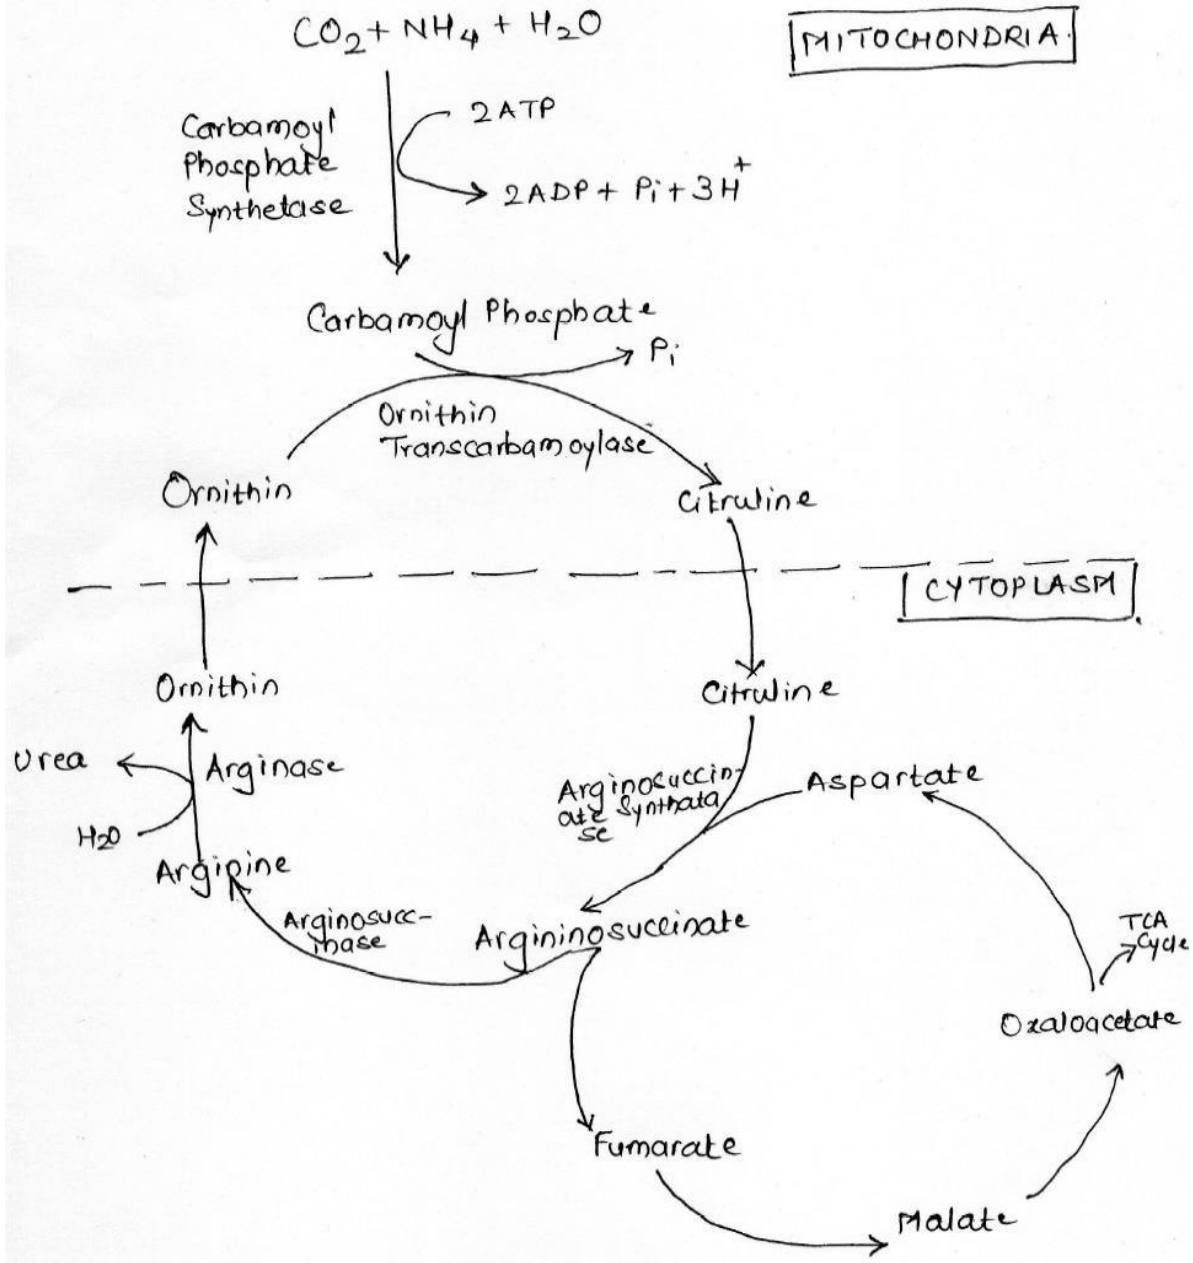 CO2 + NH4 + H2O
MITOCHONDRIA.
Carbamoyl
Phosphate
Synthetase
2 ATP
2 ADP + Pi + 3H+
Carbamoyl Phosphate
Pi
Ornithin
Transcarbamoylase
Ornithin
Citruline
CYTOPLASM
Ornithin
Citruline
Urea
Arginase
H2O
Arginine
Arginosuccin-
ate Synthata
se
Aspartate
Arginosucc-
inase
Argininosuccinate
TCA
Cycle
Oxaloacetate
Fumarate
Malate